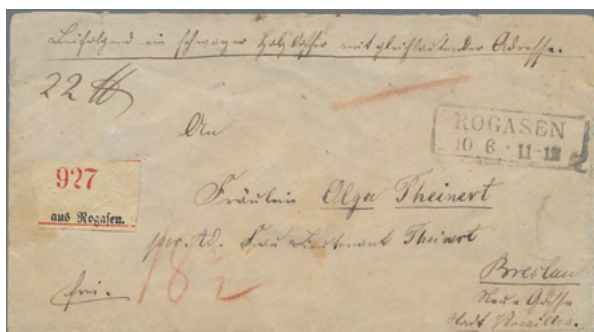 Beifolgend ein schwarzer Holzkoffer mit gleichlautender Adresse.
22 ℔
An
ROGASEN
10 6 · 11-12
927
aus Rogasen.
Fräulein Olga Theinert
per. Ad. Frau Lieutenant Theinert
Breslau
frei.
Neue Gasse
Stadt